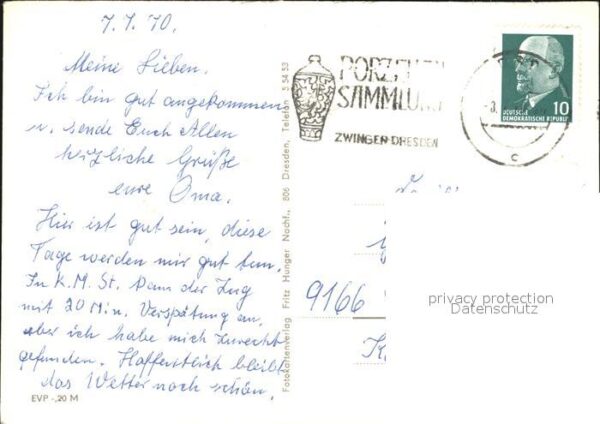 7.7.70.
Meine Lieben.
Ich bin gut angekommen
u. sende Euch Allen
herzliche Grüße
eure Oma.
Hier ist gut sein, diese
Tage werden mir gut tun.
In K.M.St. kam der Zug
mit 20 Min. Verspätung an,
aber ich habe mich zurecht
gefunden. Hoffentlich bleibt
das Wetter noch schön.
EVP -,20 M
Fotokartenverlag Fritz Hunger Nachf., 806 Dresden, Telefon 5 54 53
PORZELLAN
SAMMLUNG
ZWINGER-DRESDEN
10
DEUTSCHE
DEMOKRATISCHE REPUBLIK
c
9166
privacy protection
Datenschutz